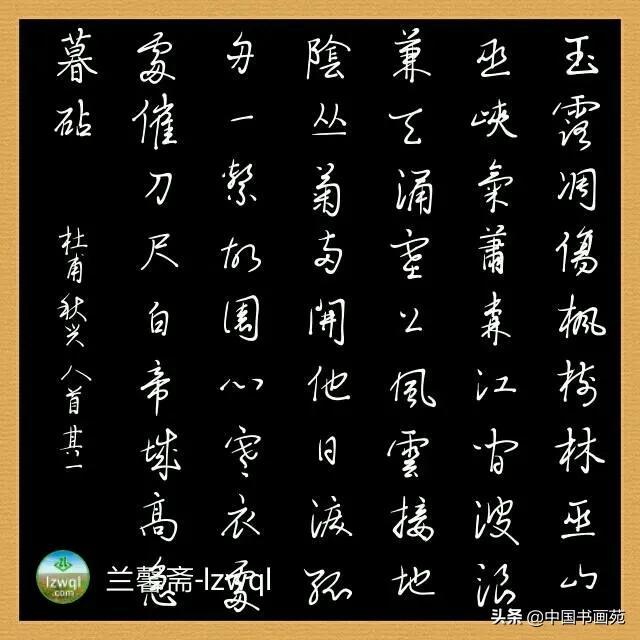 玉露凋傷楓樹林巫山
巫峽氣蕭森江间波浪
兼天涌塞上風雲接地
陰丛菊两開他日淚孤
舟一繫故園心寒衣處
處催刀尺白帝城高急
暮砧
杜甫秋兴八首其一
lzwql
.com
兰馨斋-lzwql
头条 @中国书画苑